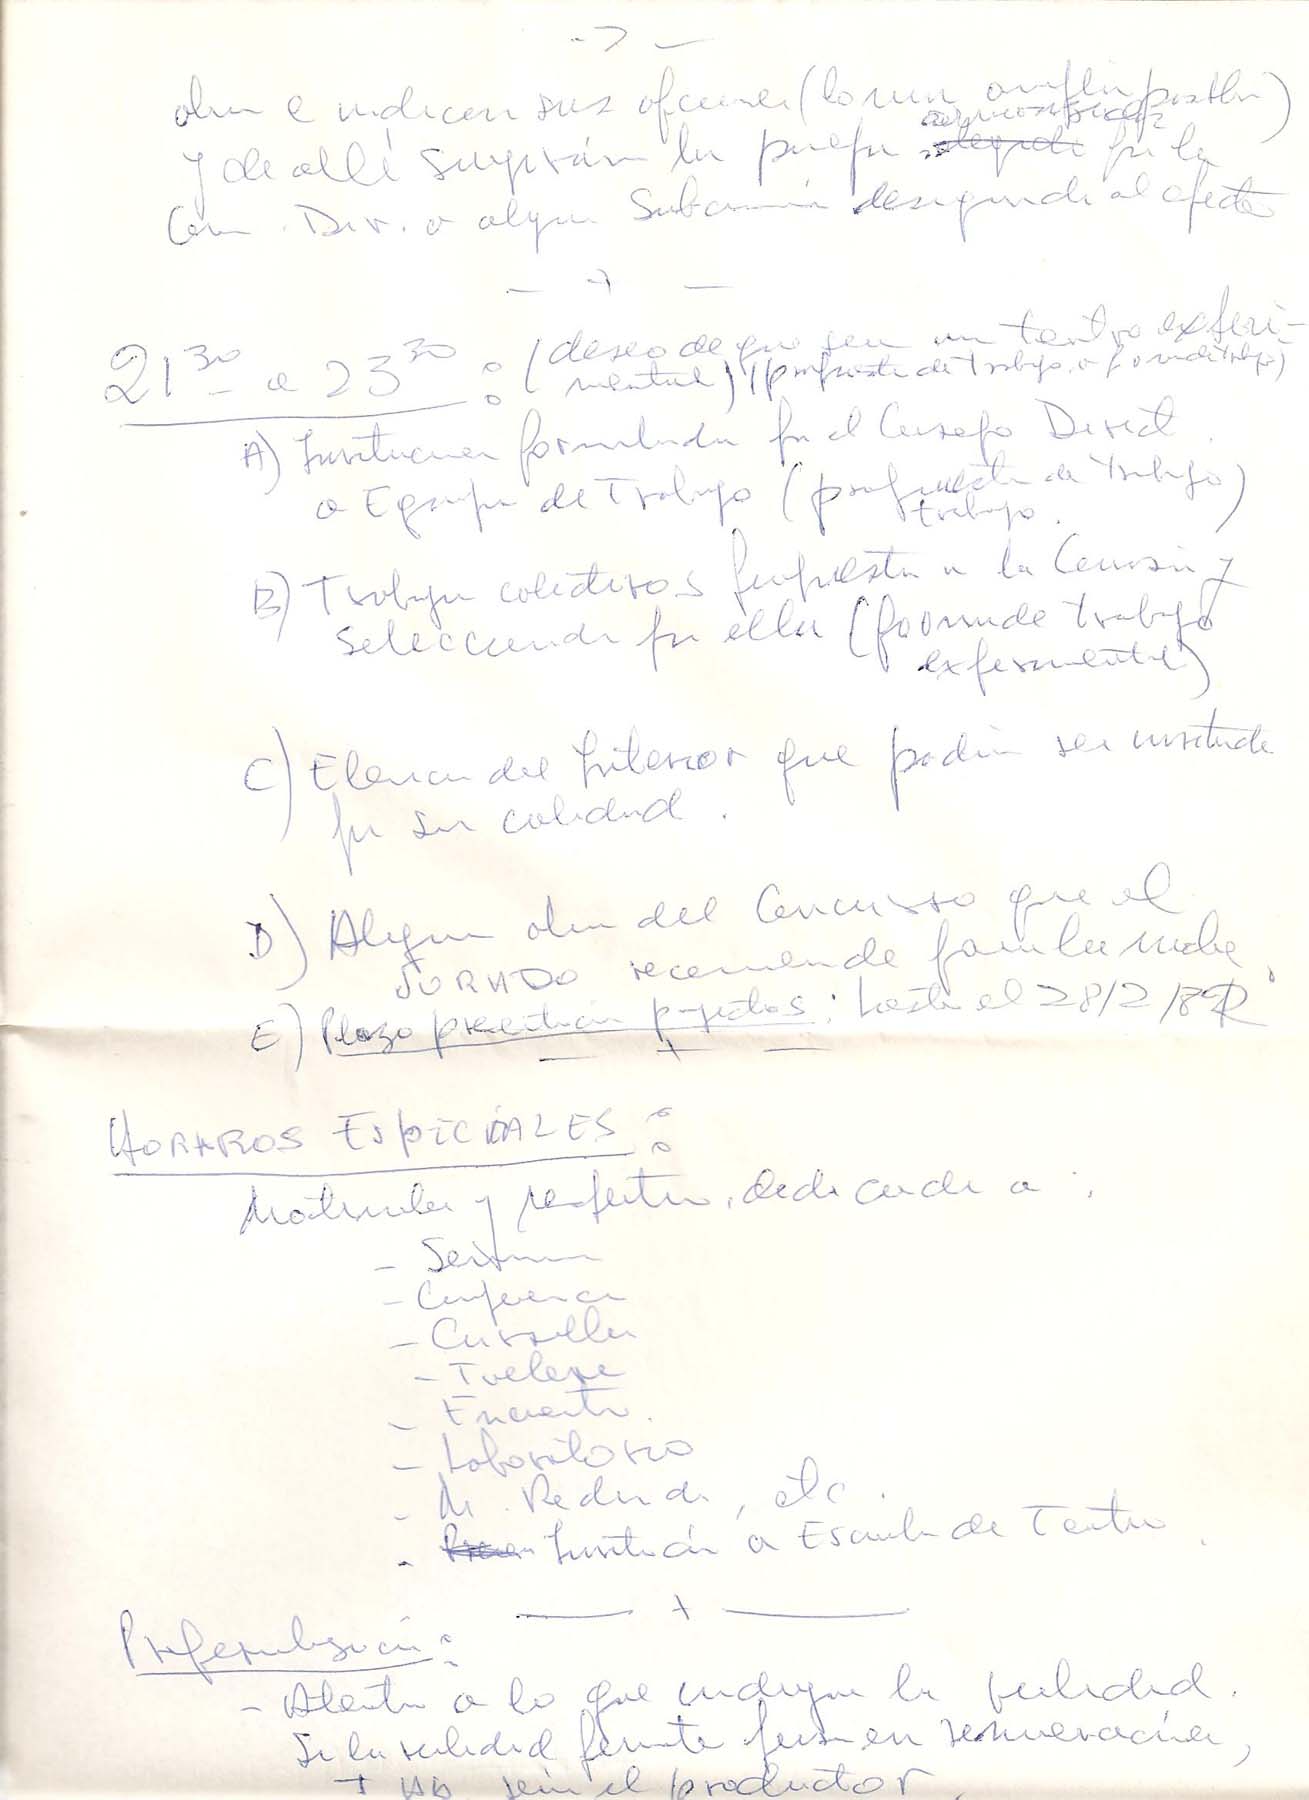 obra e indican sus opciones (lo más amplia posible)
y de allí surgirán las parejas por la
Com. Dir. o alguna Subcomisión designada al efecto
— + —
21 30 a 23 30 : (deseo de que sea un teatro experi-
mental) (propuesta de trabajo o forma de trabajo)
A) Invitaciones formuladas por el Consejo Direct.
o Equipo de Trabajo (propuesta de trabajo)
trabajo.
B) Trabajos colectivos propuestos a la Comisión y
seleccionados por ella (forma de trabajo
experimental)
C) Elencos del Interior que podrían ser invitados
por su calidad.
D) Alguna obra del Concurso que el
JURADO recomiende para las noches.
E) Plazo presentación proyectos : hasta el 28/2/8
— + —
HORARIOS ESPECIALES :
Matinales y vespertinos, dedicados a :
- Seminarios
- Conferencias
- Cursillos
- Talleres
- Encuentros.
- Laboratorio
- M. Redonda, etc.
- Invitación a Escuelas de Teatro.
— + —
:
- Atentos a lo que indique la realidad.
Si la realidad permite pensar en remuneración,
T AB sería el productor.